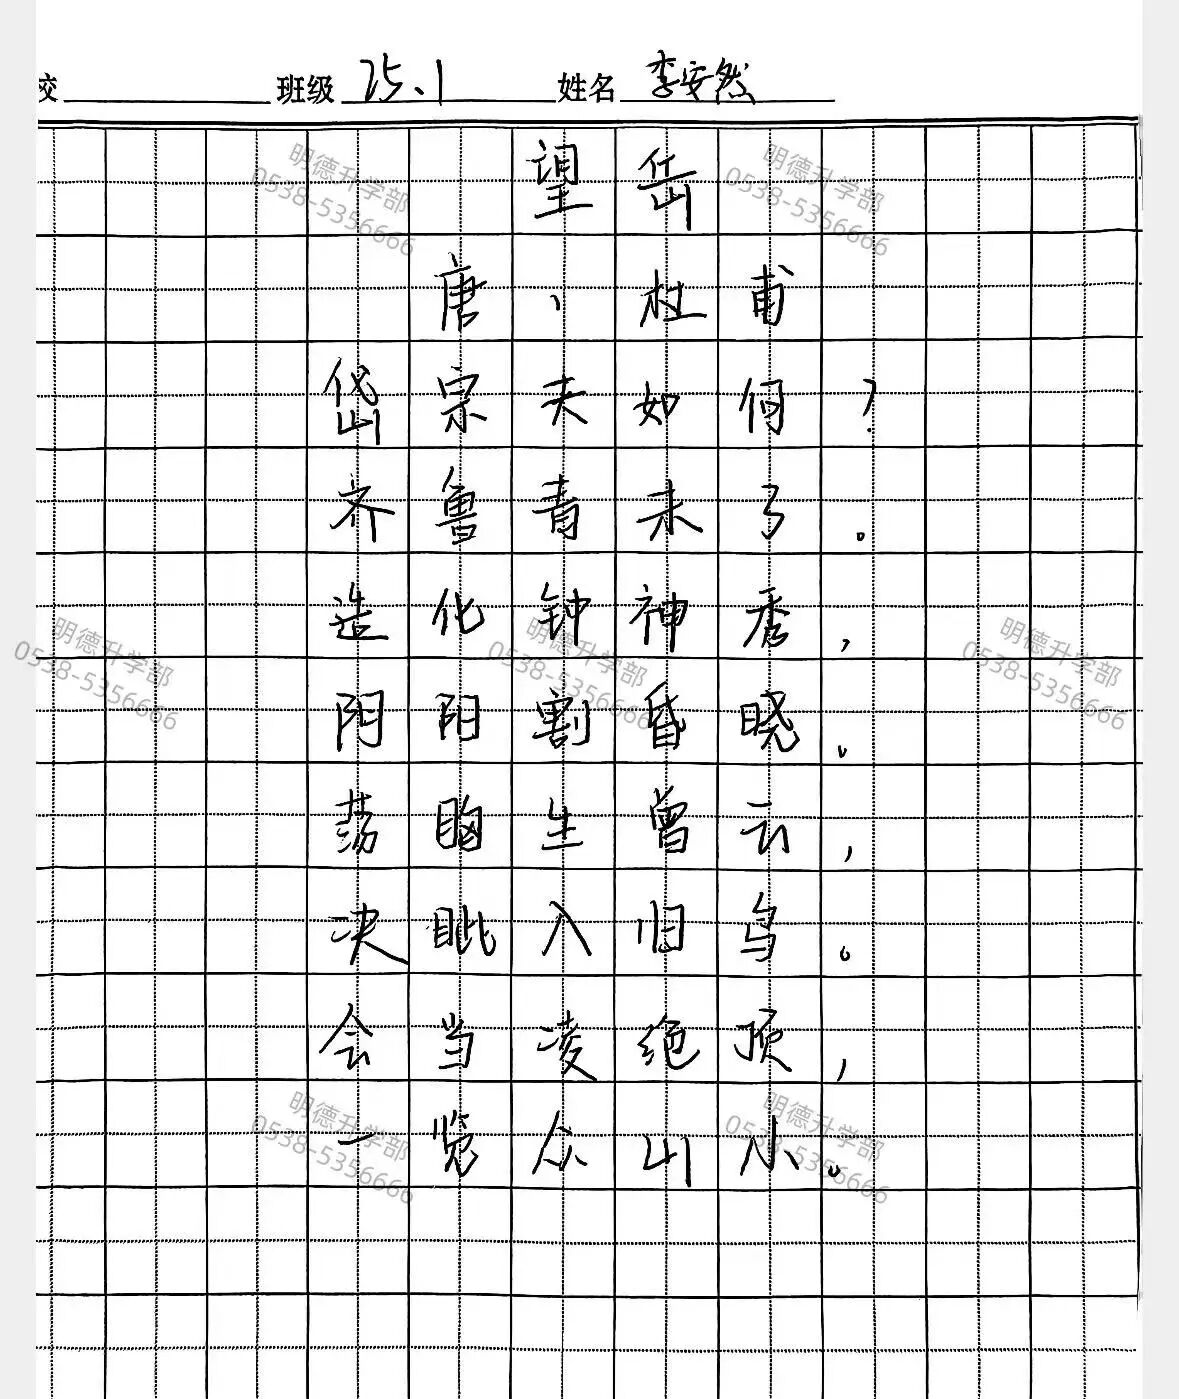 校 班级 25.1 姓名 李安然
望岳
唐、杜甫
岱宗夫如何？
齐鲁青未了。
造化钟神秀，
阴阳割昏晓。
荡胸生曾云，
决眦入归鸟。
会当凌绝顶，
一览众山小。
明德升学部
0538-5356666
明德升学部
0538-5356666
明德升学部
0538-5356666
明德升学部
0538-5356666
明德升学部
0538-5356666
明德升学部
0538-5356666
明德升学部
0538-5356666